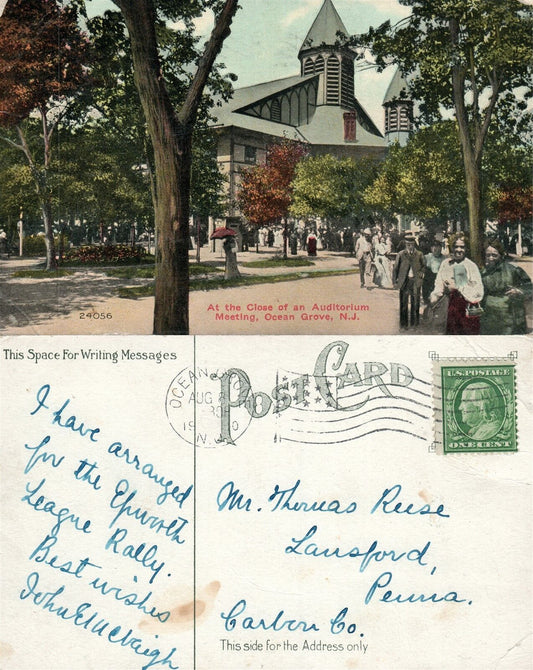 24056
At the Close of an Auditorium
Meeting, Ocean Grove, N.J.
This Space For Writing Messages
POST CARD
OCEAN
AUG
N.J.
U.S. POSTAGE
ONE CENT
I have arranged
for the Epworth
League Rally.
Best wishes
John E
Mr. Thomas Reese
Lansford,
Penna.
Carbon Co.
This side for the Address only